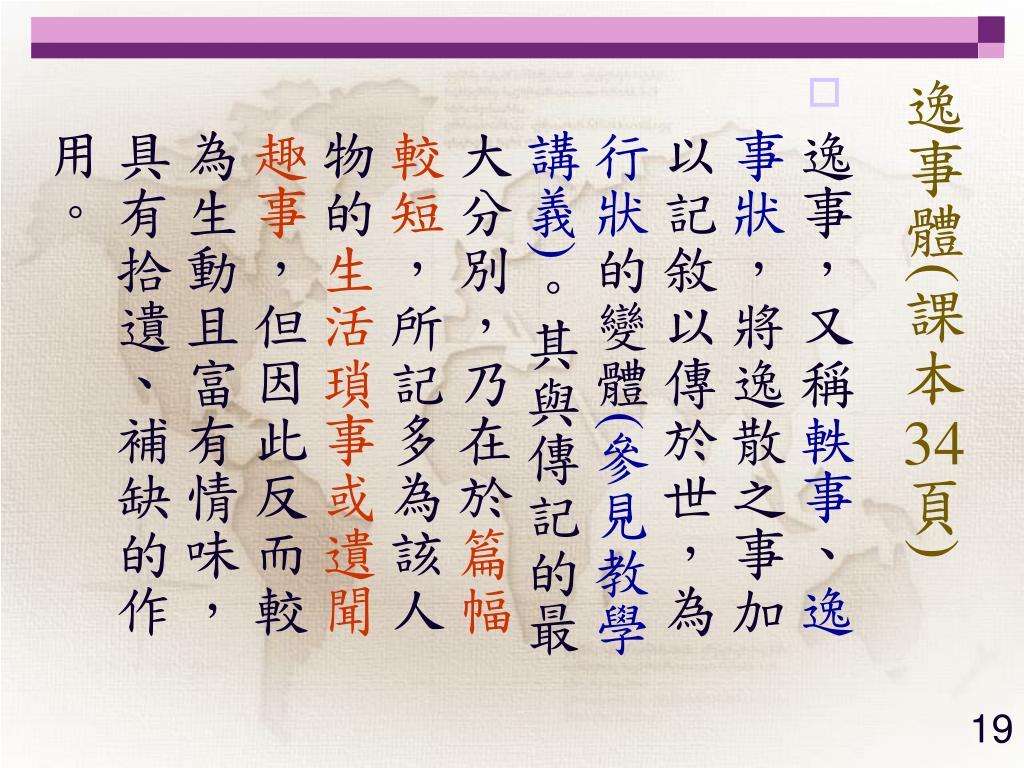 逸事體(課本34頁)
逸事，又稱軼事、逸
事狀，將逸散之事加
以記敘以傳於世，為
行狀的變體(參見教學
講義)。其與傳記的最
大分別，乃在於篇幅
較短，所記多為該人
物的生活瑣事或遺聞
趣事，但因此反而較
為生動且富有情味，
具有拾遺、補缺的作
用。
19